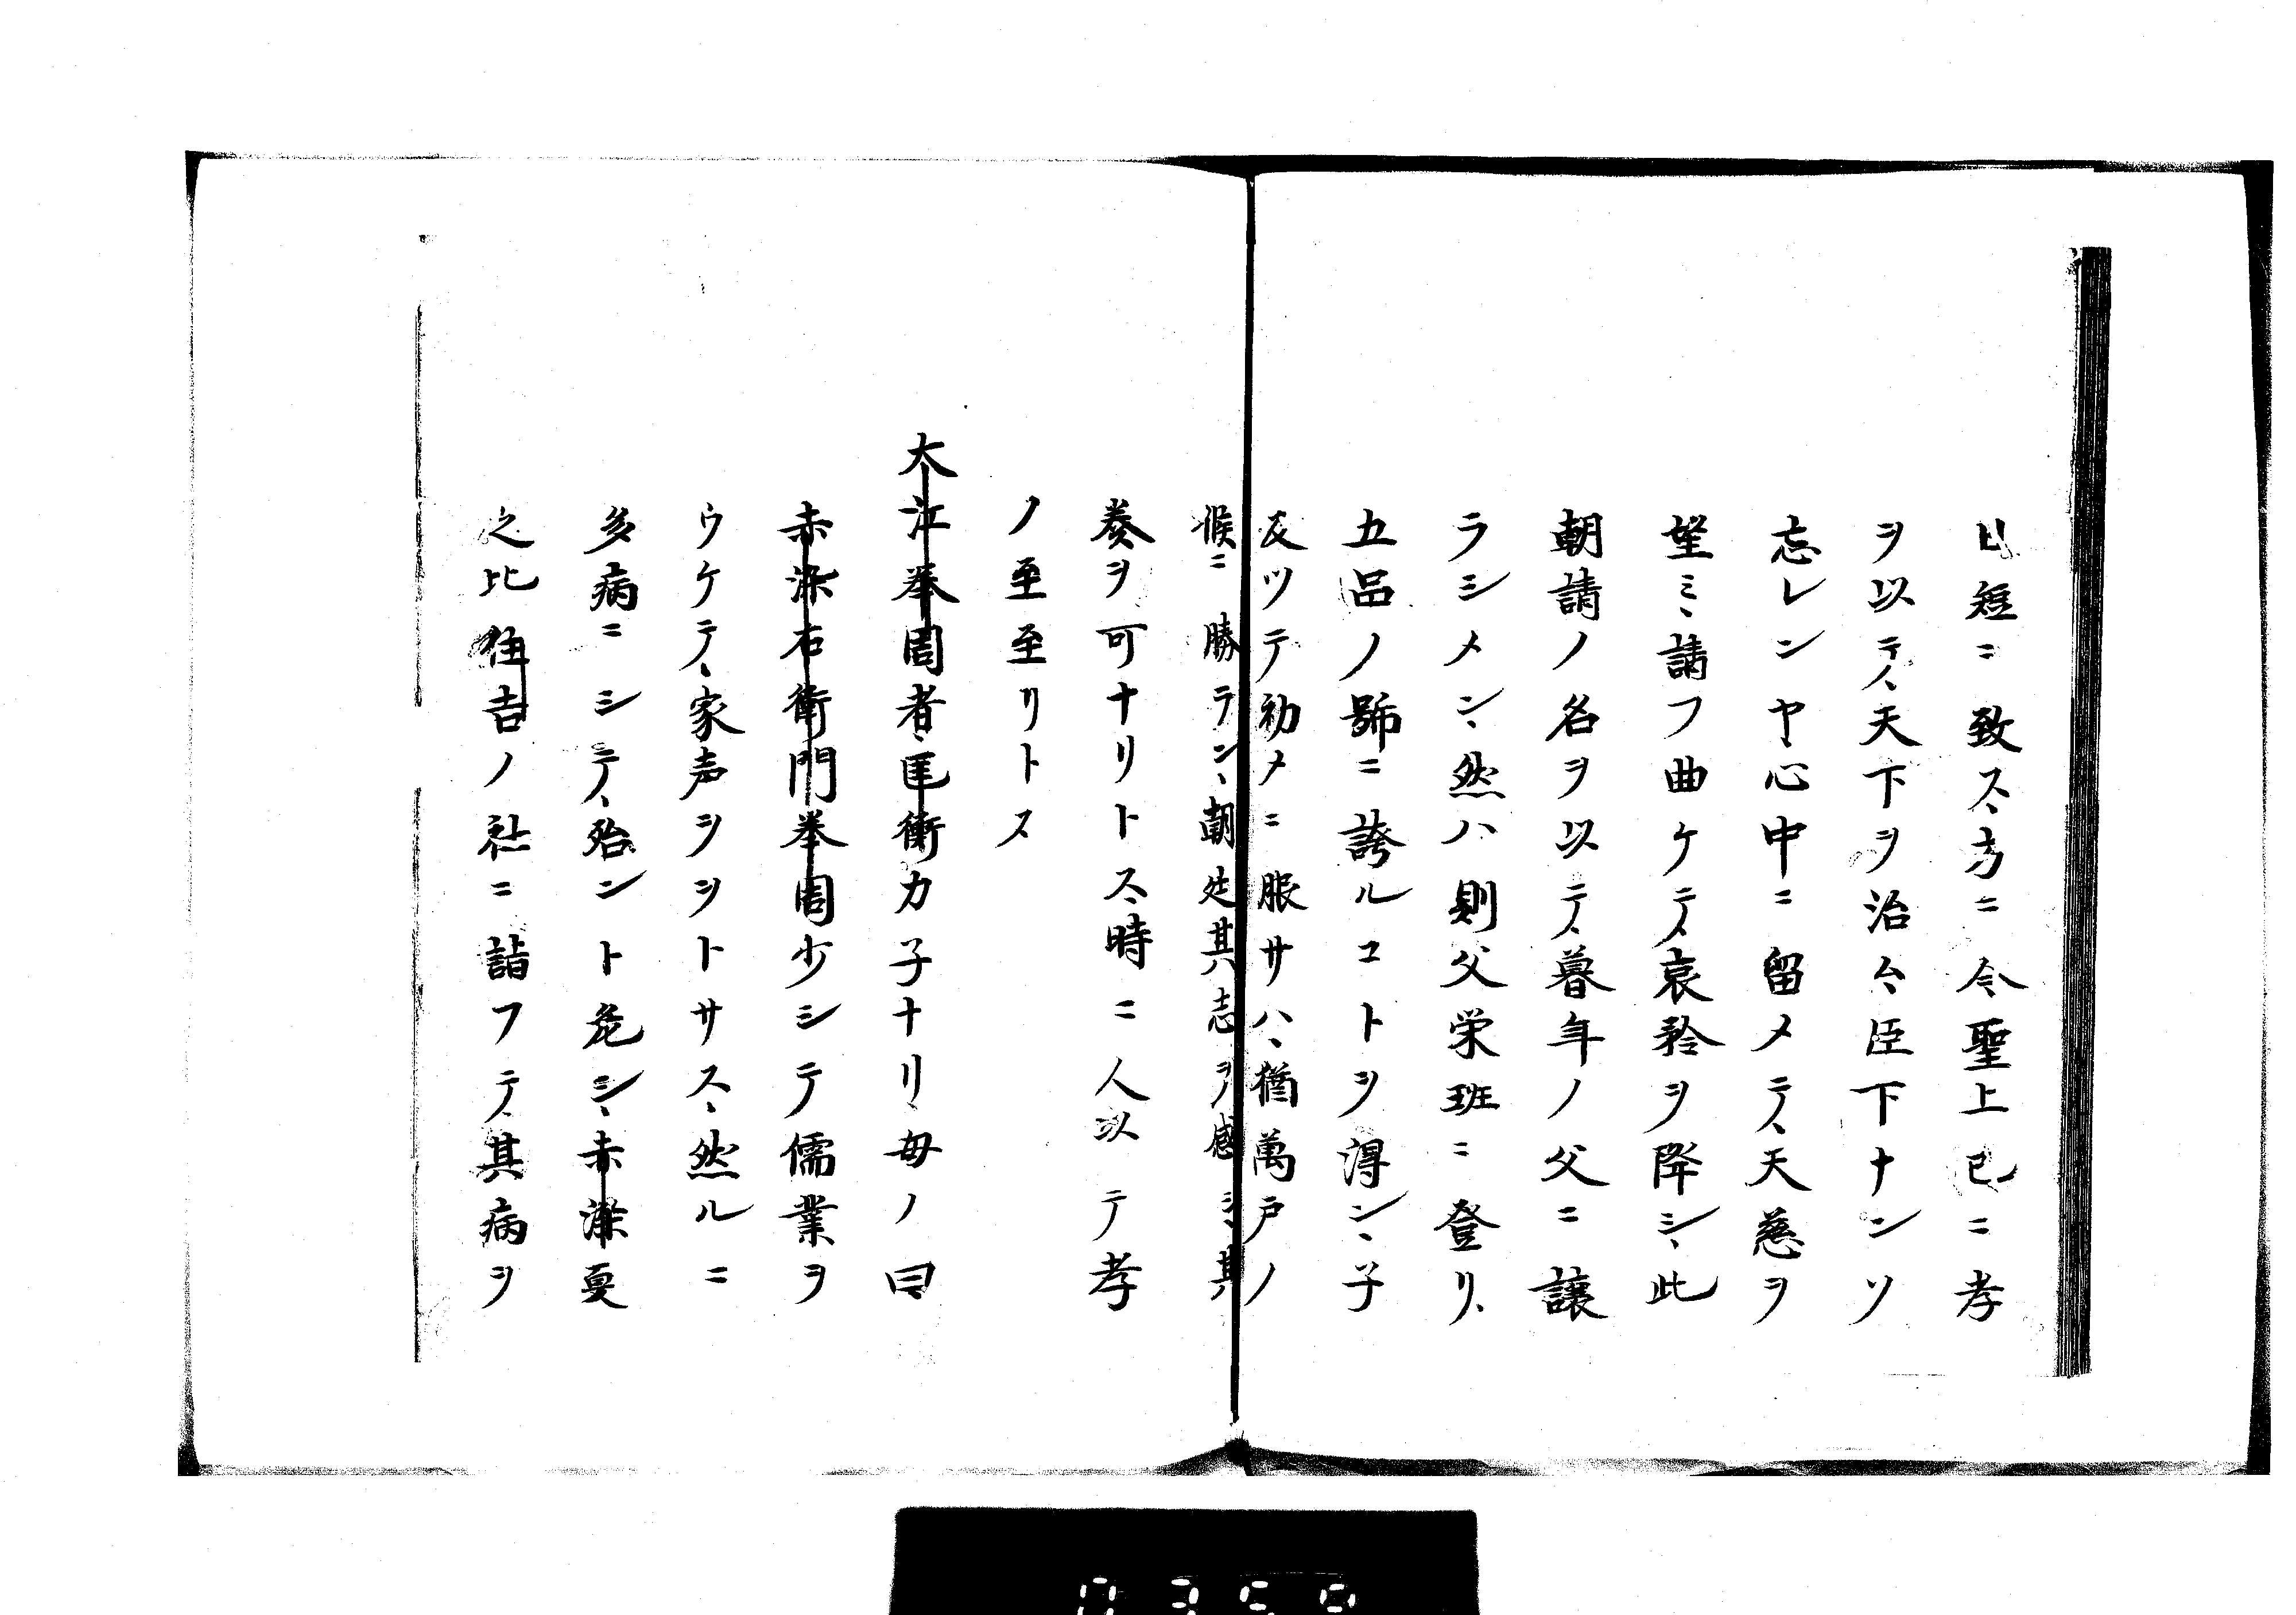 日短ニ致ス、方ニ今聖上已ニ孝
ヲ以テ、天下ヲ治ム、臣下ナンソ
忘レンヤ、心中ニ留メテ、天慈ヲ
望ミ、請フ曲ケテ、哀矜ヲ降シ、此
朝請ノ名ヲ以テ、暮年ノ父ニ譲
ラシメン、然ハ則父栄班ニ登リ、
五品ノ號ニ誇ルコトヲ得ン、子
反ツテ初メニ服サハ、猶萬戸ノ
候ニ勝ラン、朝廷其志ヲ感シ、其
奏ヲ可ナリトス、時ニ人以テ孝
ノ至至リトス
大江挙周者、匡衡カ子ナリ、母ノ曰
赤染右衛門挙周少シテ儒業ヲ
ウケテ、家声ヲヲトサス、然ルニ
多病ニシテ、殆ント危シ、赤染憂
之比住吉ノ社ニ詣フテ、其病ヲ